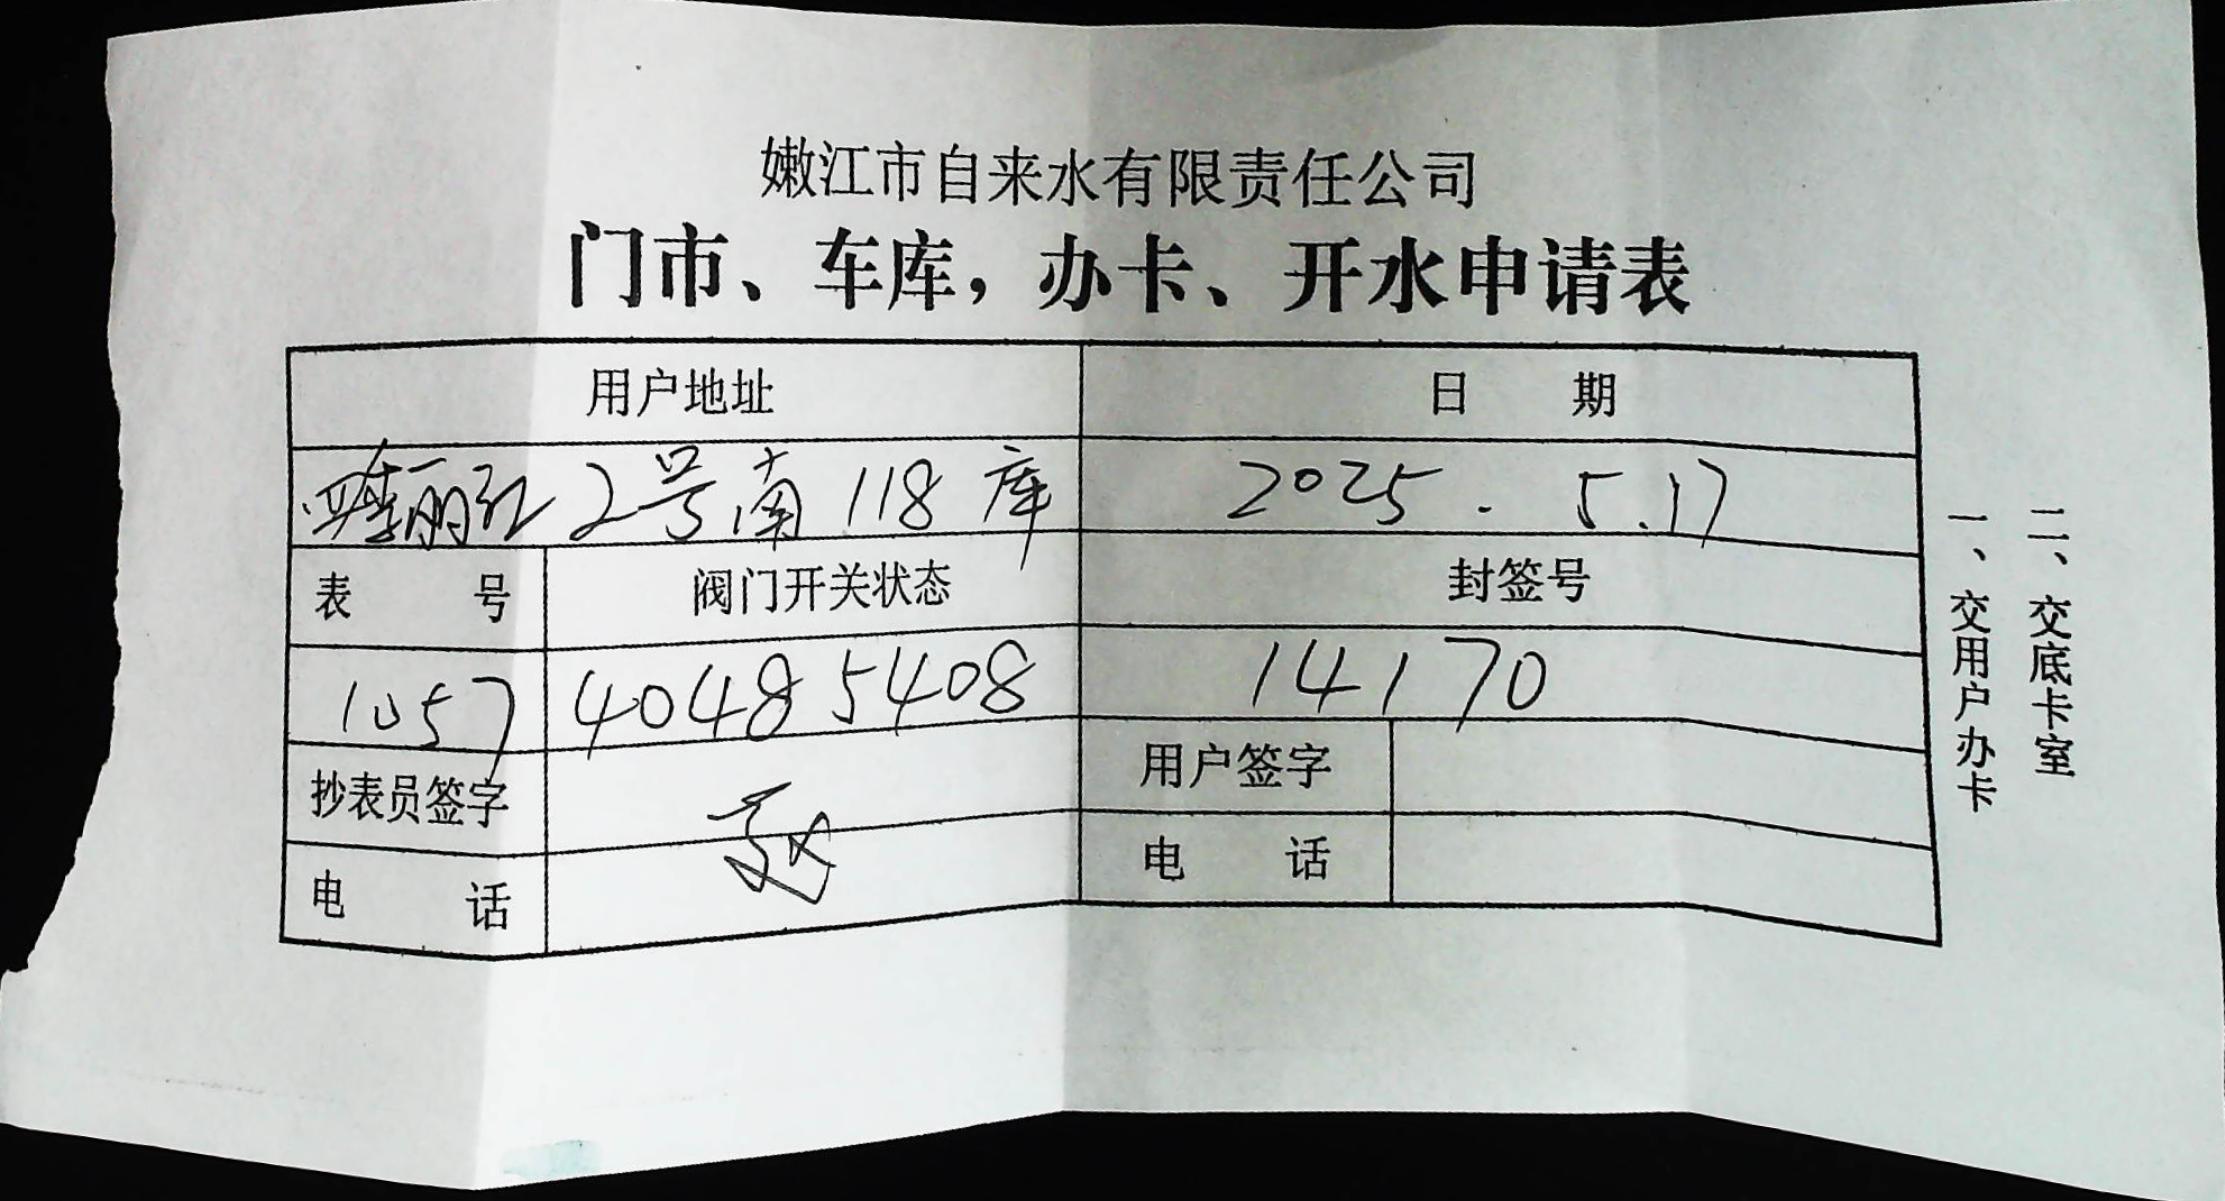 嫩江市自来水有限责任公司
门市、车库，办卡、开水申请表
用户地址 日 期
2号南118库 2025.5.17
表 号 阀门开关状态 封签号
1057 40485408 14170
抄表员签字 用户签字
电 话 电 话
一、交用户办卡
二、交底卡室